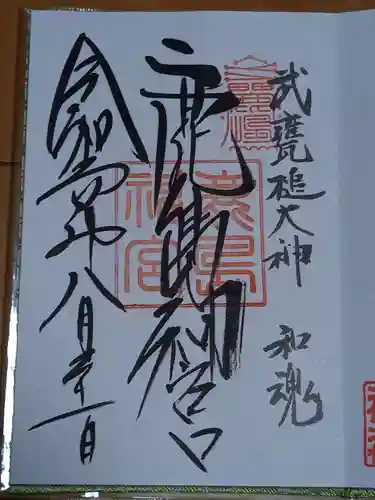 武甕槌大神 和魂
鹿島神宮
鹿島神宮
令和年八月十一日